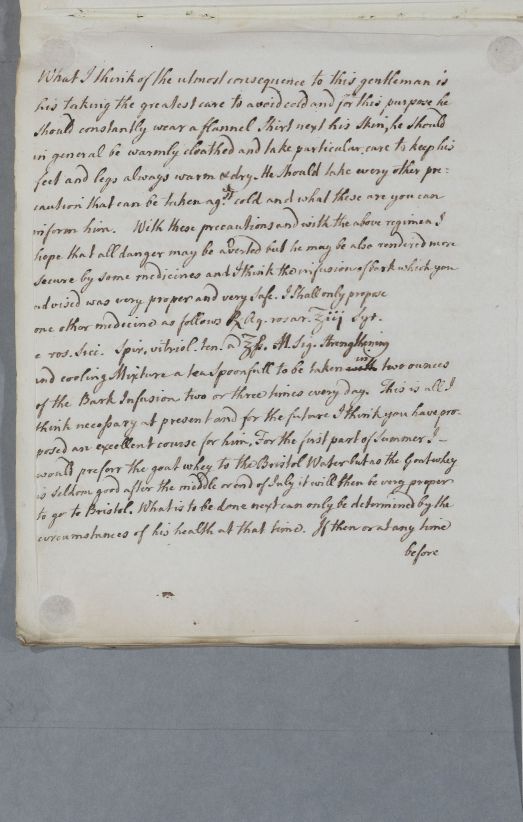 What I think of the utmost consequence to this gentleman is
his taking the greatest care to avoid cold and for this purpose he
should constantly wear a flannel Shirt next his Skin, he should
in general be warmly cloathed and take particular care to keep his
feet and legs always warm & dry. He should take every other pre:
caution that can be taken agst cold and what these are you can
inform him. With these precautions and with the above regimen I
hope that all danger may be averted but he may be also rendered more
secure by some medicines and I think the infusion of bark which you
advised was very proper and very safe. I shall only propose
one other medicine as follows ℞ Aq. rosar. ʒiij Syr.
e ros. sicc. Spir. vitriol. ten. a ʒß. M. Sig. Strengthening
and cooling Mixture a teaspoonfull to be taken with in two ounces
of the Bark Infusion two or three times every day. This is all I
think necessary at present and for the future I think you have pro-
posed an excellent course for him. For the first part of Summer I
would preferr the goat whey to the Bristol Water but as the Goat whey
is seldom good after the middle or end of July it will then be very proper
to go to Bristol. What is to be done next can only be determined by the
circumstances of his health at that time. If then or at any time
before